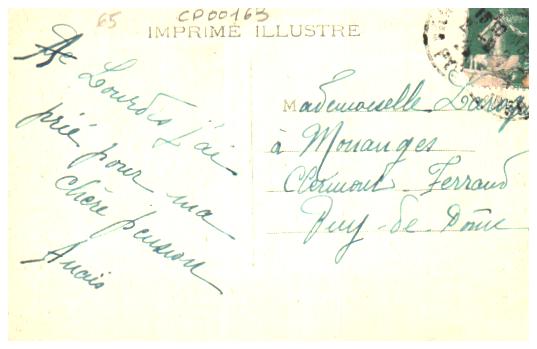 65
CP00163
IMPRIMÉ ILLUSTRÉ
De
Lourdes j'ai
prié pour ma
chère pension
Anaïs
Mademoiselle
à Monanges
Clermont-Ferrand
Puy-de-Dôme